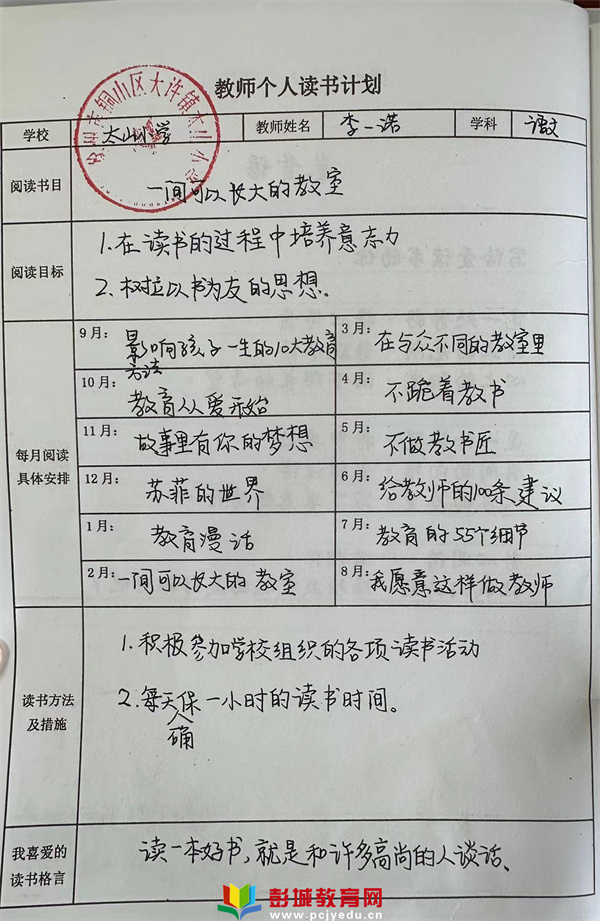 教师个人读书计划
学校 太山小学 教师姓名 李一诺 学科 语文
阅读书目 一间可以长大的教室
阅读目标
1.在读书的过程中培养意志力
2.树立以书为友的思想。
每月阅读
具体安排
9月: 影响孩子一生的10大教育
方法
3月: 在与众不同的教室里
10月: 教育从爱开始
4月: 不跪着教书
11月: 故事里有你的梦想
5月: 不做教书匠
12月: 苏菲的世界
6月: 给教师的100条建议
1月: 教育漫话
7月: 教育的55个细节
2月: 一间可以长大的教室
8月: 我愿意这样做教师
读书方法
及措施
1.积极参加学校组织的各项读书活动
2.每天保确一小时的读书时间。
我喜爱的
读书格言
读一本好书,就是和许多高尚的人谈话、
彭城教育网
www.pcjyedu.cn